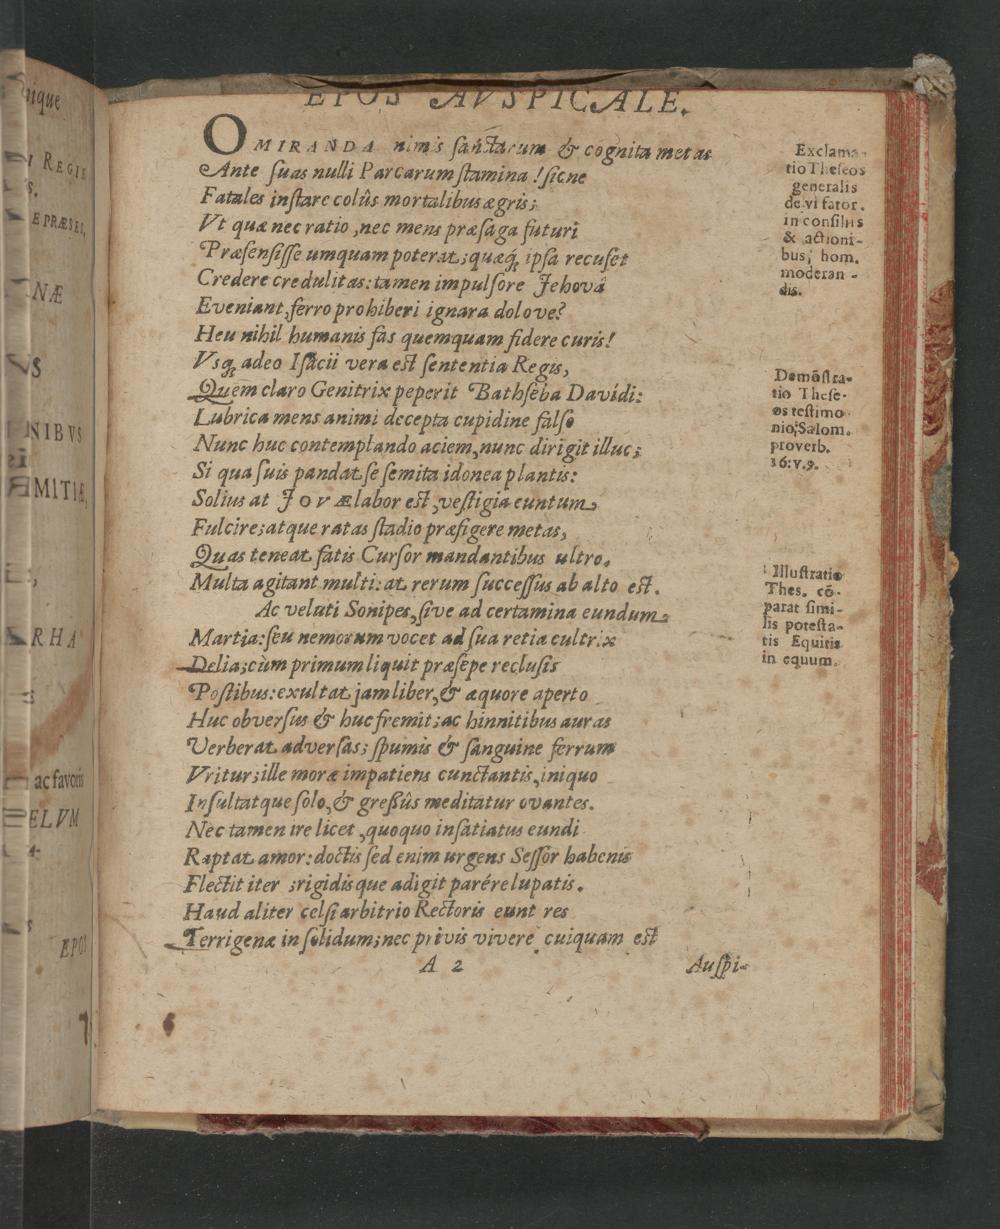 EPOS AVSPICALE.
O MIRANDA nimis sanctarum & cognita metas
Ante suas nulli Parcarum stamina! siсne
Fatales instare colûs mortalibus ægris;
Vt quæ nec ratio, nec mens præsaga futuri
Præsensisse umquam poterat; quæq; ipsa recuset
Credere credulitas: tamen impulsore Jehovâ
Eveniant, ferro prohiberi ignara dolove?
Heu nihil humanis fas quemquam fidere curis!
Vsq; adeo Isacii vera est sententia Regis,
Quem claro Genitrix peperit Bathseba Davidi:
Lubrica mens animi decepta cupidine falso
Nunc huc contemplando aciem, nunc dirigit illuc;
Si qua suis pandat se semita idonea plantis:
Solius at JOVÆ labor est, vestigia euntum
Fulcire; atque ratas stadio præfigere metas,
Quas teneat fatis Cursor mandantibus ultro.
Multa agitant multi: at rerum successus ab alto est.
Ac veluti Sonipes, sive ad certamina eundum
Martia: seu nemorum vocet ad sua retia cultrix
Delia; cùm primum liquit præsepe reclusis
Postibus: exultat jam liber, & æquore aperto
Huc obversus & huc fremit; ac hinnitibus auras
Verberat adversas; spumis & sanguine ferrum
Vritur; ille moræ impatiens cunctantis, iniquo
Insultatque solo, & gressûs meditatur ovantes.
Nec tamen ire licet, quoquo insatiatus eundi
Raptat amor: doctis sed enim urgens Sessor habenis
Flectit iter; rigidisque adigit parére lupatis.
Haud aliter celsi arbitrio Rectoris eunt res
Terrigenæ in solidum; nec privis vivere cuiquam est
A 2
Auspi-
Exclama-
tio Theseos
generalis
de vi fator.
in consiliis
& actioni-
bus, hom.
moderan-
dis.
Demõstra-
tio These-
os testimo
nio, Salom.
proverb.
16: v. 9.
Illustratio
Thes. cõ-
parat simi-
lis potesta-
tis Equitis
in equum.
nique
I REGIE
S.
E PRÆSES,
NÆ
VS
NIBVS
EMITIÆ,
RHA
ac favoris
ELVM
EPOS